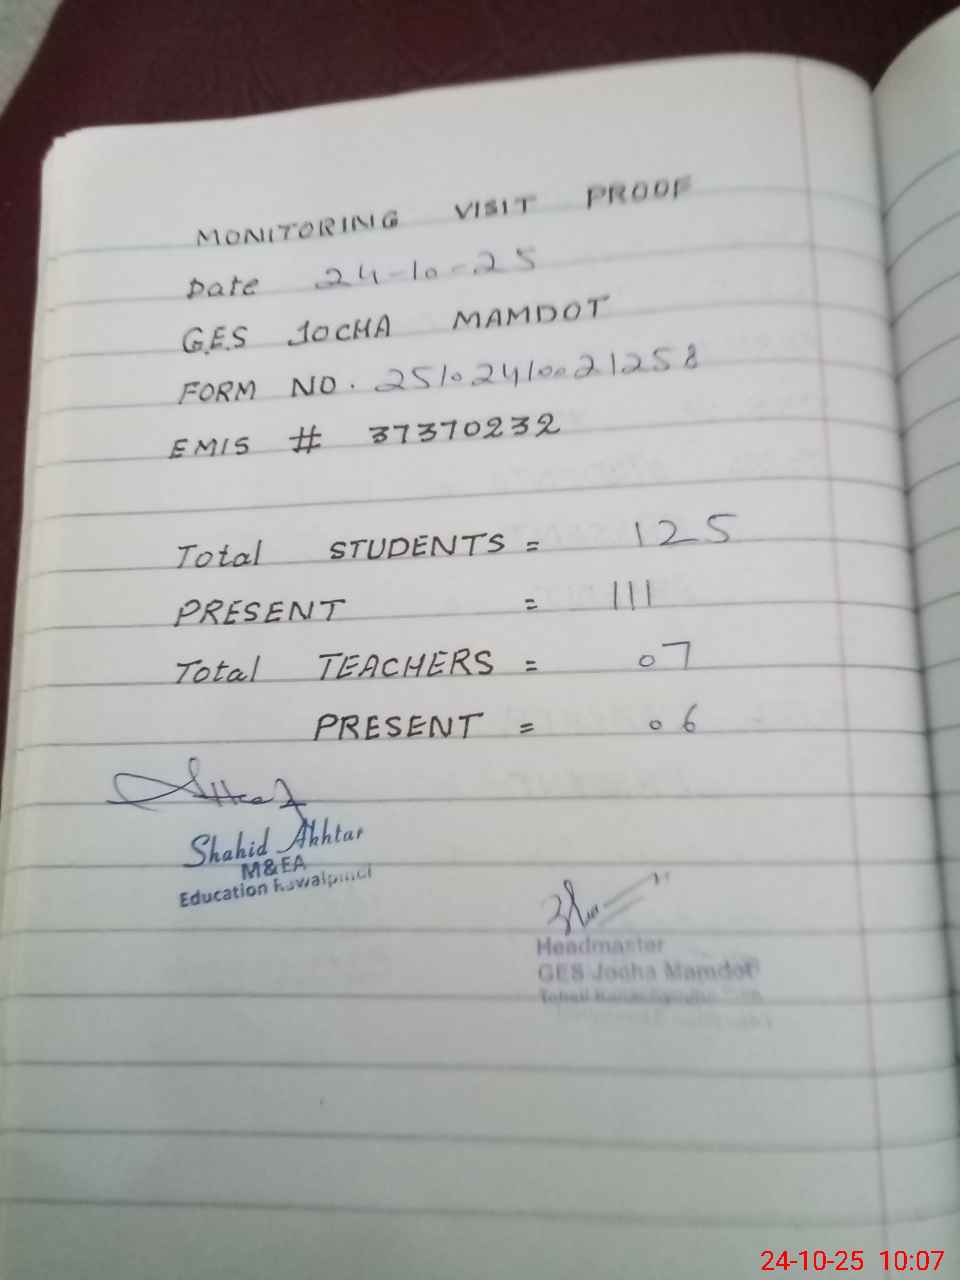 MONITORING VISIT PROOF
Date 24-10-25
G.E.S JOCHA MAMDOT
FORM NO. 251024100021258
EMIS # 37370232
Total STUDENTS = 125
PRESENT = 111
Total TEACHERS = 07
PRESENT = 06
Shahid Akhtar
M&EA
Education Rawalpindi
Headmaster
GES Jocha Mamdot
24-10-25 10:07